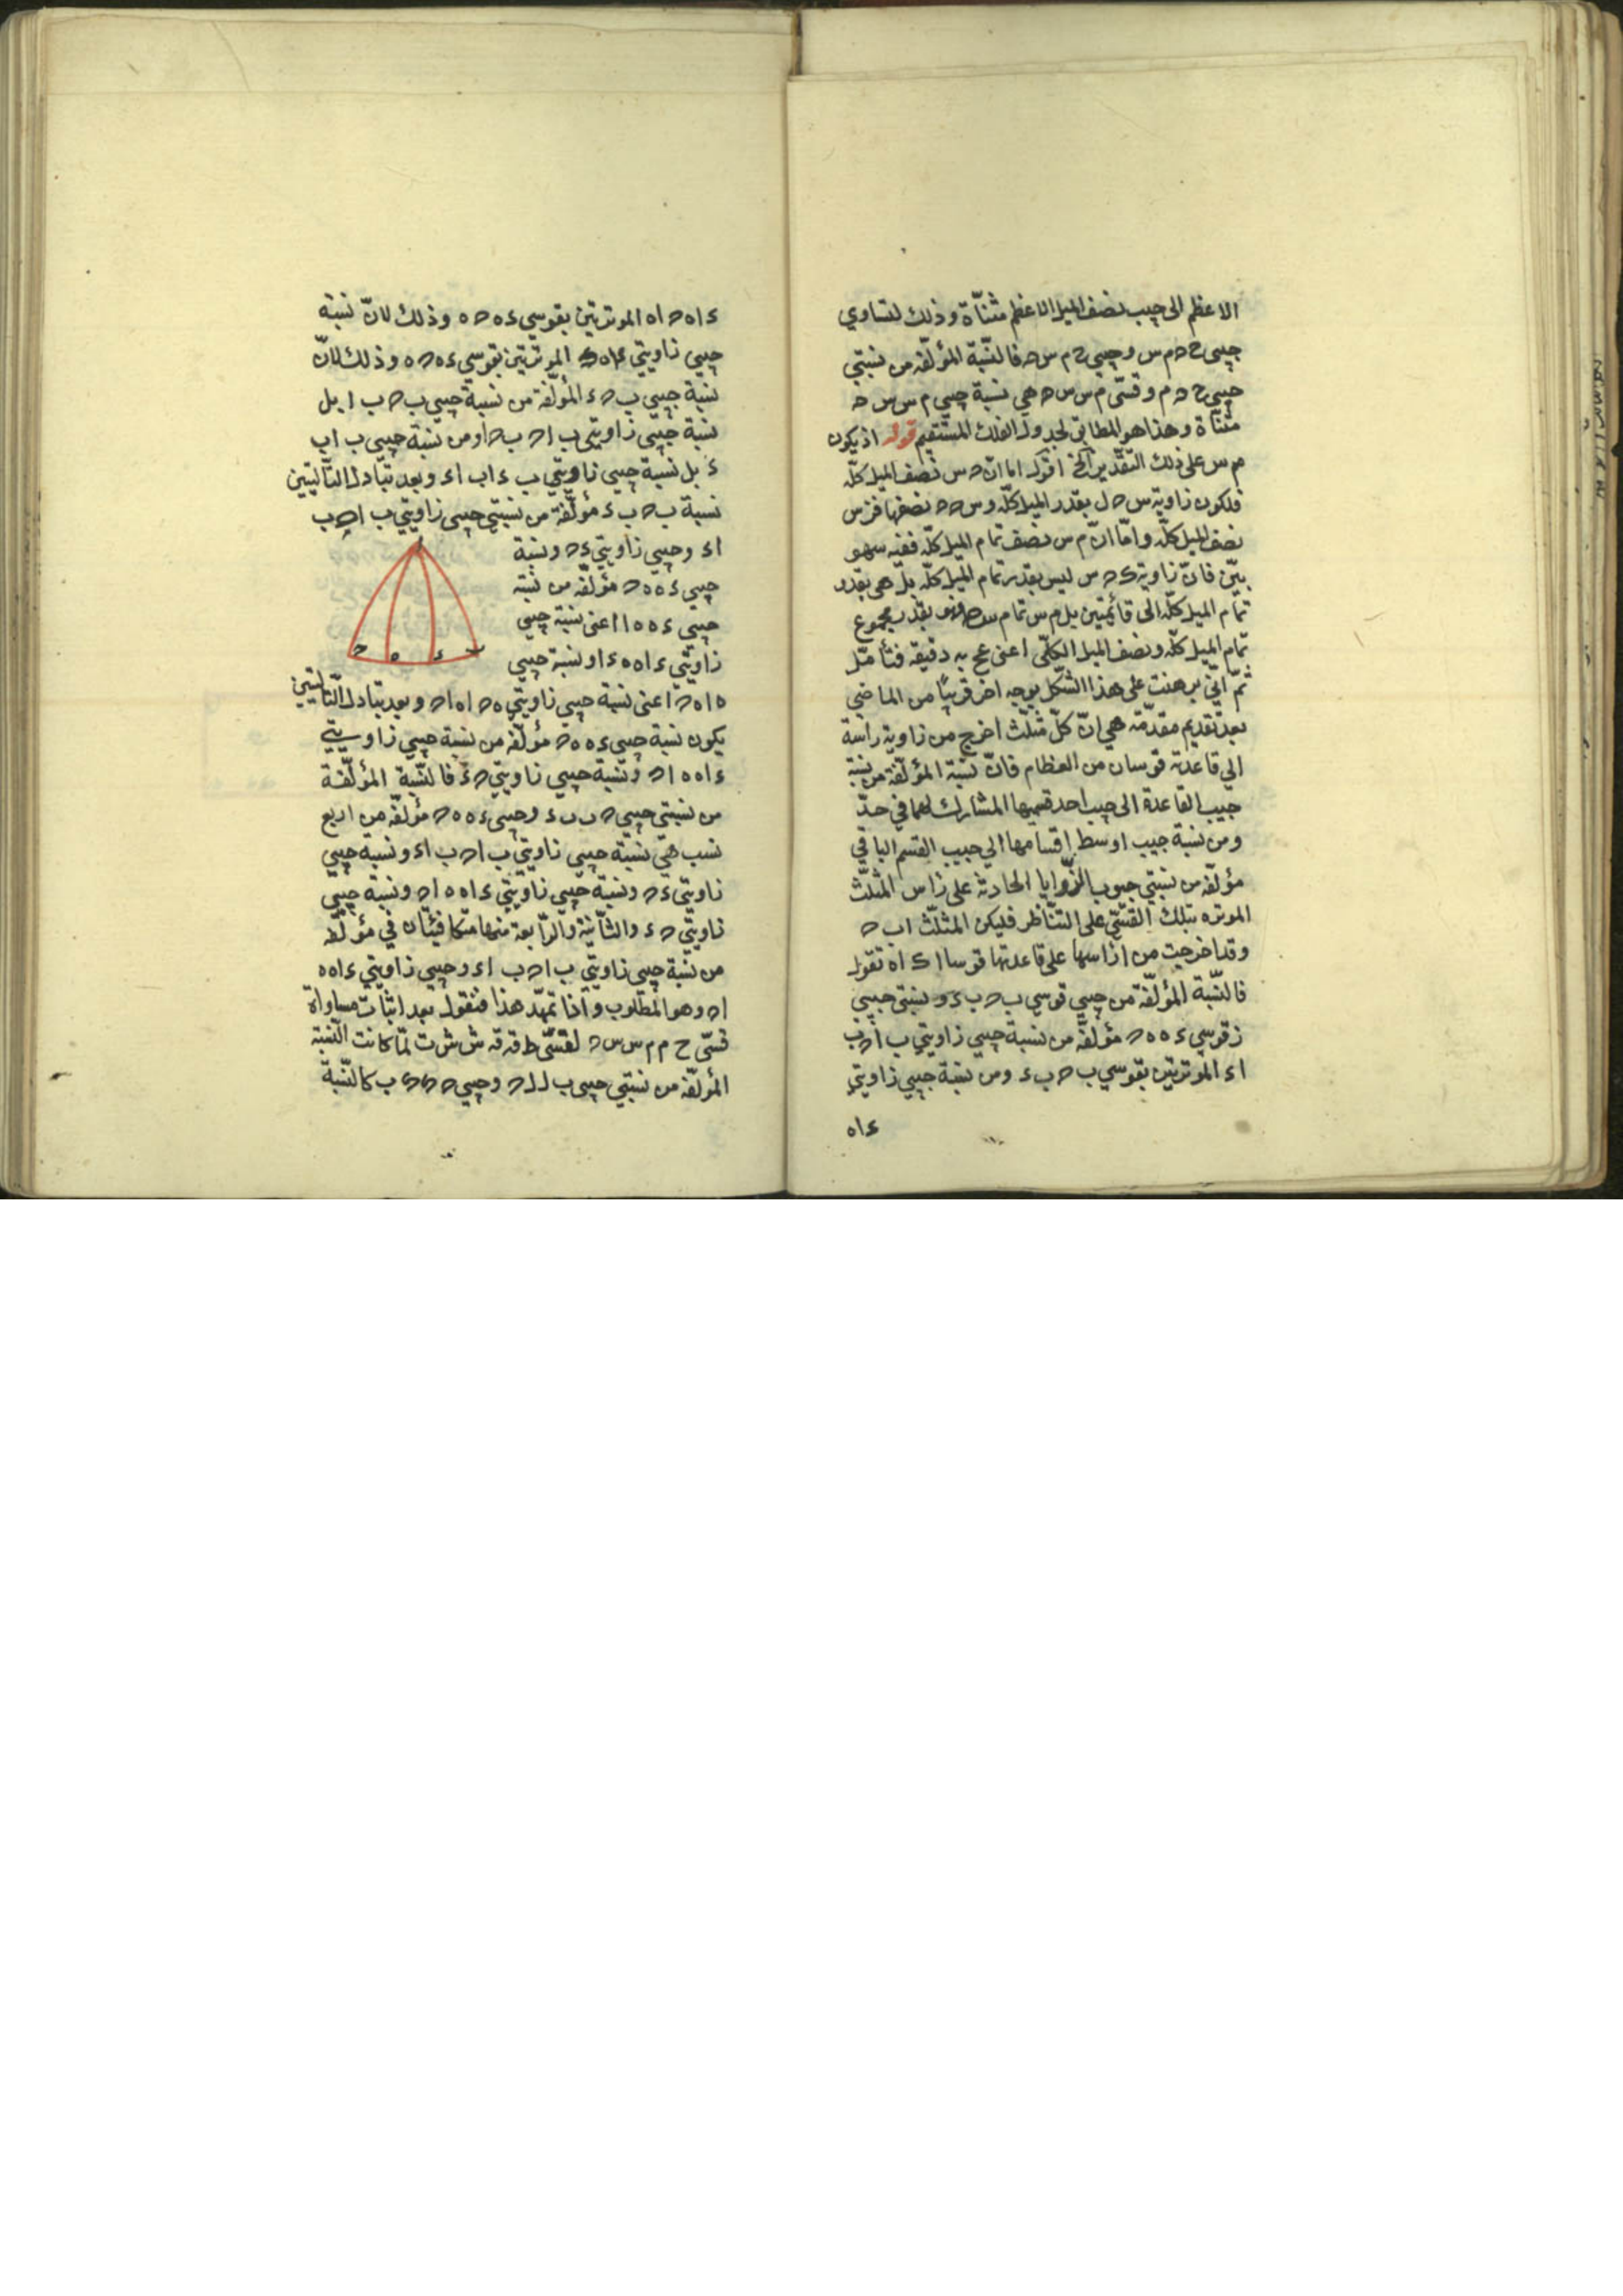 الاعظم الى جيب نصف الميل الاعظم مثناة وذلك لتساوي
جيبي ح ه م س وجيبي ح م س ه فالنسبة المؤلفة من نسبتي
جيبي ح ه م وقسي م س س ه هي نسبة جيبي م س س ه
مثناة وهذا هو المطابق لجدول الفلك المستقيم قوله اذ يكون
م س على ذلك التقدير الخ اقول اما ان ه س نصف الميل كله
فلكون زاوية س ه ل بقدر الميل كله و س ه ه نصفها فزس
نصف الميل كله واما ان م س نصف تمام الميل كله ففيه سهو
بين فان زاوية ك ه س ليس بقدر تمام الميل كله بل هى بقدر
تمام الميل كله الى قائمتين بل م س تمام س ه فهو بقدر مجموع
تمام الميل كله ونصف الميل الكلى اعنى عح به دقيقة فتأمل
ثم اني برهنت على هذا الشكل بوجه اخر قريبا من الماضي
بعد تقديم مقدمة هي ان كل مثلث اخرج من زاوية راسه
الي قاعدته قوسان من العظام فان نسبة المؤلفة من نسبة
جيب القاعدة الى جيب احد قسميها المشارك لهما في حد
ومن نسبة جيب اوسط اقسامها الي جيب القسم الباقي
مؤلفة من نسبتي جيوب الزوايا الحادثة على راس المثلث
الموتره بتلك القسي على التناظر فليكن المثلث ا ب ح
وقد اخرجت من ا راسها على قاعدتها قوسا ا ء ا ه نقول
فالنسبة المؤلفة من جيبي قوسي ب ح ب ء و نسبتي جيبي
قوسي ء ه ه ح مؤلفة من نسبة جيبي زاويتي ب ا ح ب
ا ء الموترتين بقوسي ب ح ب ء ومن نسبة جيبي زاويتي
ء ا ه
ء ا ه ح ا ه الموترتين بقوسي ء ه ح ه وذلك لان نسبة
جيبي زاويتي الموترتين بقوسي ء ه ح ه وذلك لان
نسبة جيبي ب ح ء المؤلفة من نسبة جيبي ب ح ب ا بل
نسبة جيبي زاويتي ب ا ح ب ح ا ومن نسبة جيبي ب ا ب
ء بل نسبة جيبي زاويتي ب ء ا ب ا ء وبعد تبادل التاليتين
نسبة ب ح ب ء مؤلفة من نسبتي جيبي زاويتي ب ا ح ب
ا ء وجيبي زاويتي ء ح ونسبة
جيبي ء ه ه ح مؤلفة من نسبة
جيبي ء ه ه ا اعنى نسبة جيبي
زاويتي ء ا ه ء ا ونسبة جيبي
ه ا ه ح اعنى نسبة جيبي زاويتي ه ح ا ه ا ح وبعد تبادل التاليتين
يكون نسبة جيبي ء ه ه ح مؤلفة من نسبة جيبي زاويتي
ء ا ه ه ا ح ونسبة جيبي زاويتي ح ء فالنسبة المؤلفة
من نسبتي جيبي ح ب ب ء وجيبي ء ه ه ح مؤلفة من اربع
نسب هي نسبة جيبي زاويتي ب ا ح ب ا ء ونسبة جيبي
زاويتي ء ح ونسبة جيبي زاويتي ء ا ه ه ا ح ونسبة جيبي
زاويتي ح ء والثانية والرابعة منها متكافئتان في مؤلفة
من نسبة جيبي زاويتي ب ا ح ب ا ء وجيبي زاويتي ء ا ه ه
ا ح وهو المطلوب واذا تمهد هذا فنقول بعد اثبات مساواة
قسي ح م م س س ه لقسي ط ق ش ش ت لما كانت النسبة
المؤلفة من نسبتي جيبي ب ل ل ح وجيبي ب كالنسبة
ا
ب
ء
ه
ح